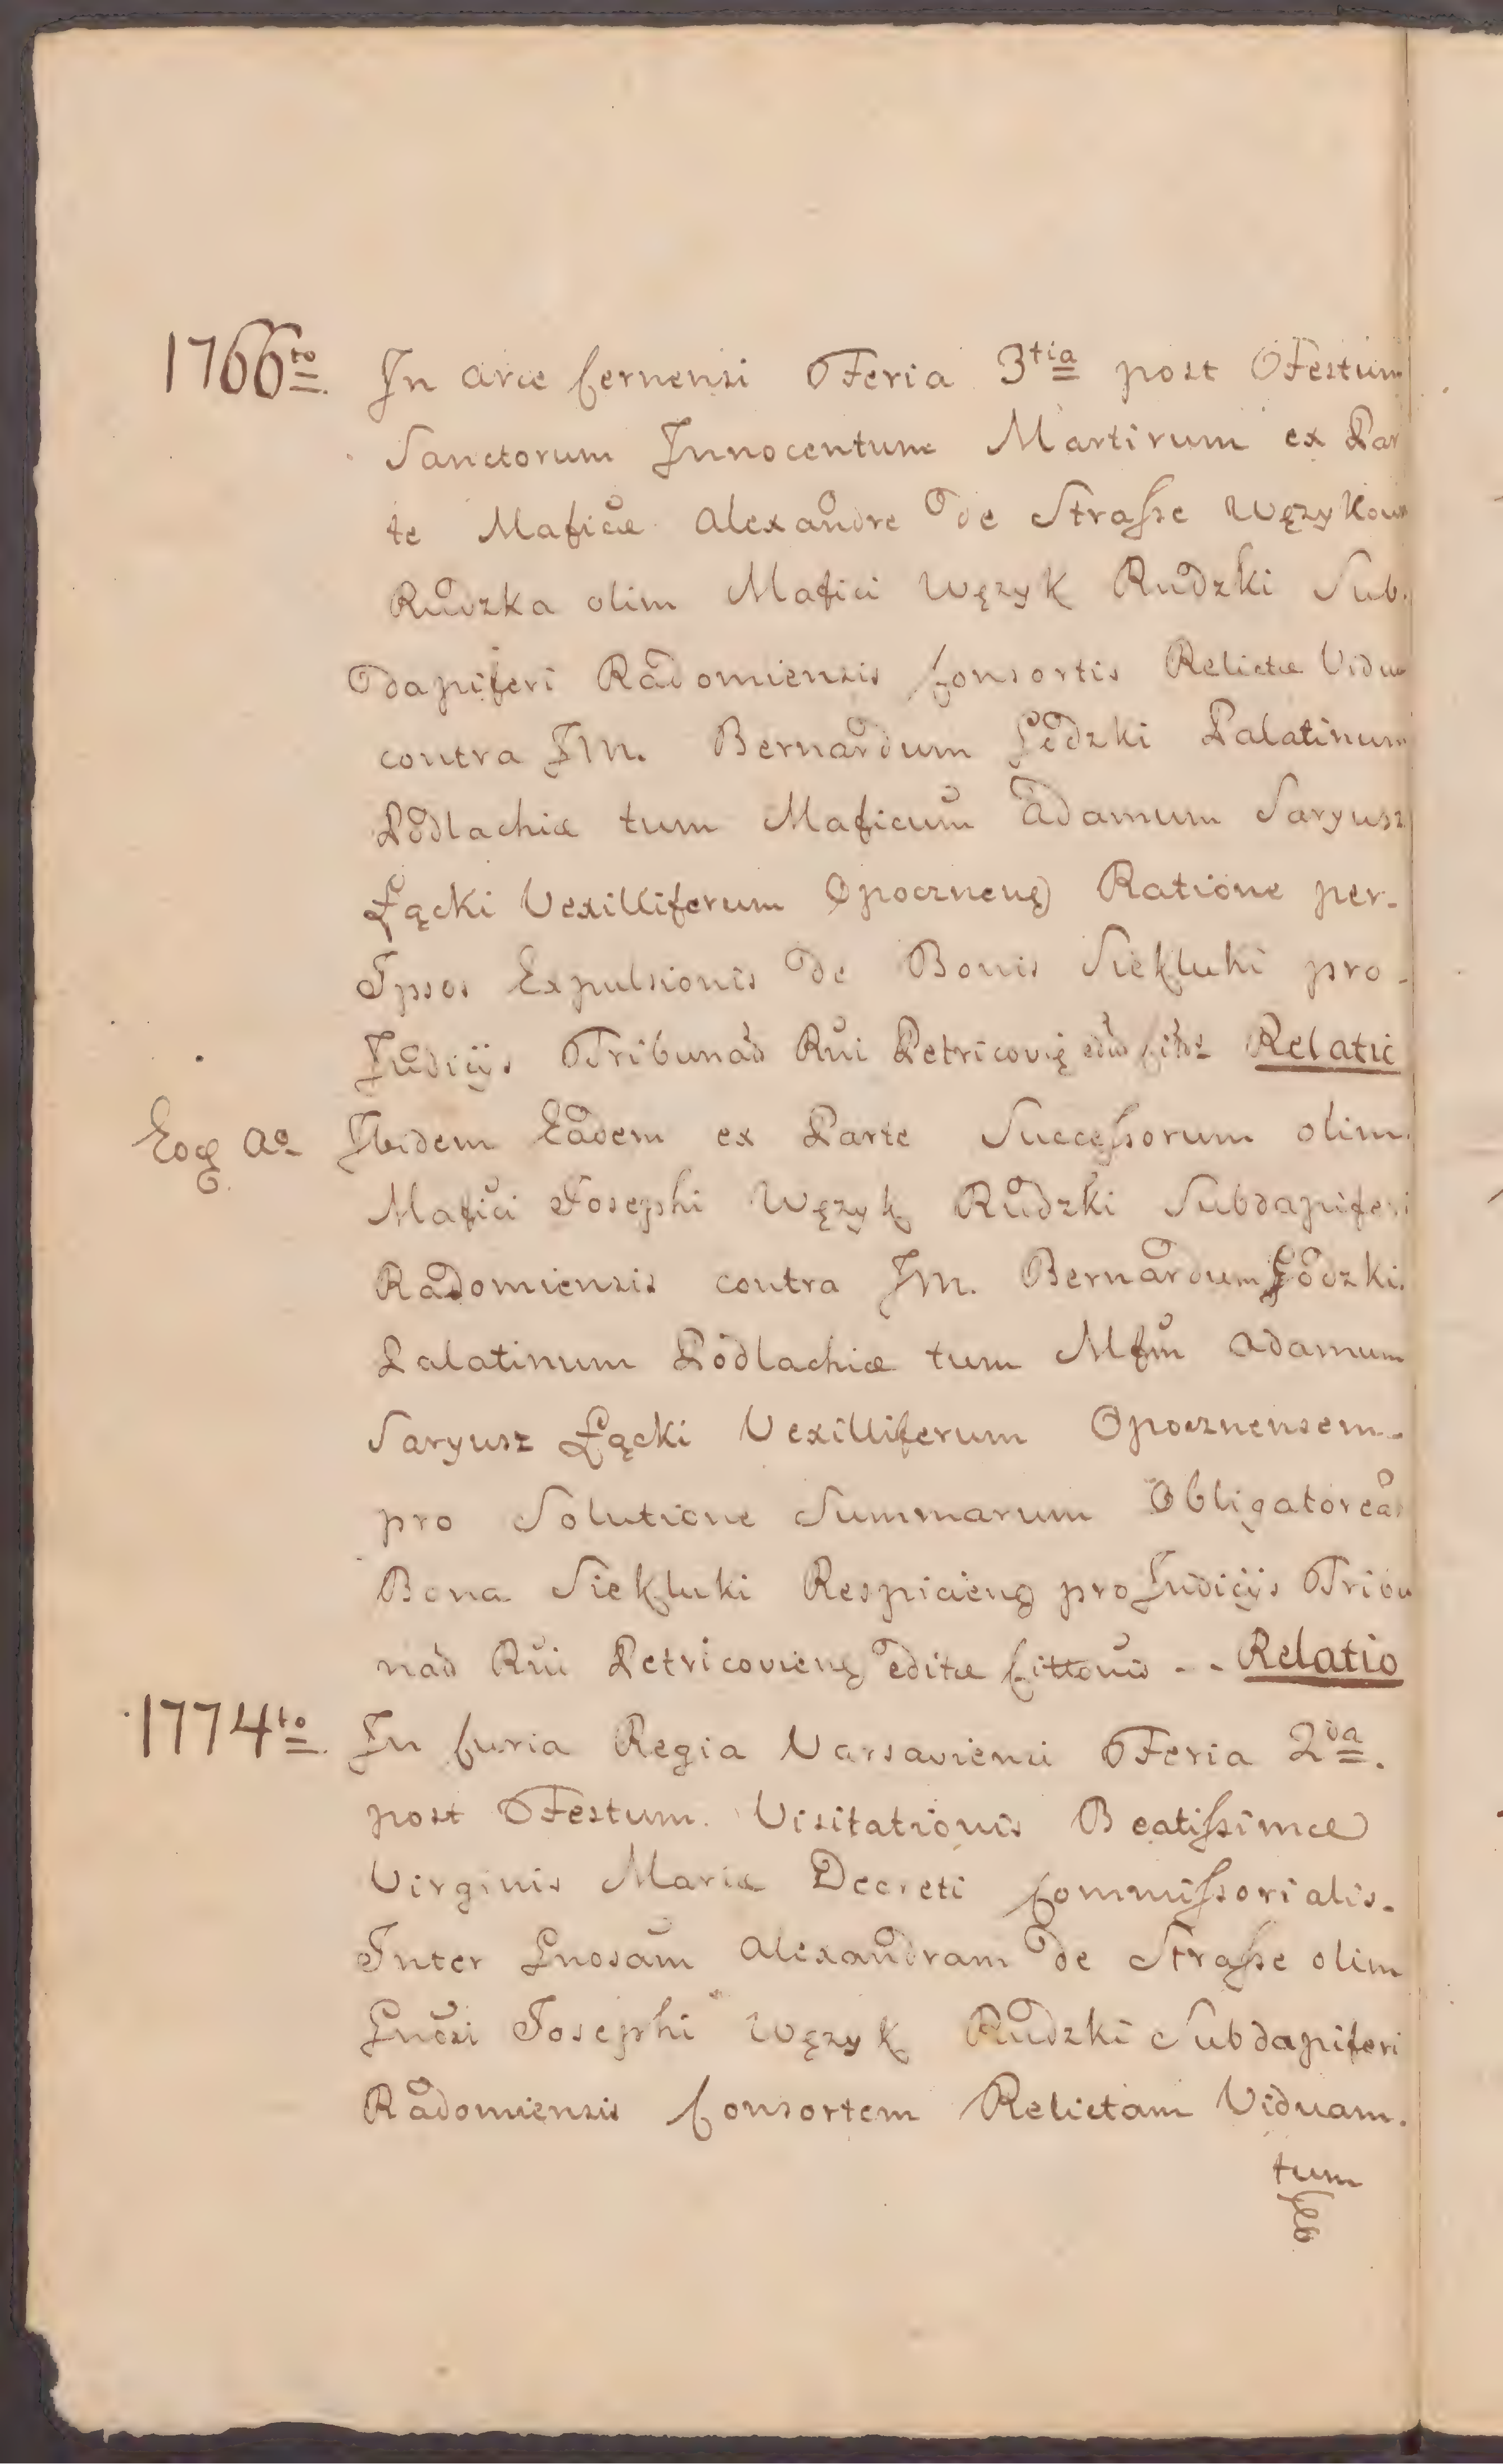 1766to In Arce Cernensi Feria 3tia post Festum
Sanctorum Innocentum Martirum ex Par
te Mafice Alexandre de Strasse Węzykow
Rudzka olim Mafici Węzyk Rudzki Sub.
dapiferi Radomiensis Consortis Relictæ Viduæ
contra JM. Bernardum Godzki Palatinum
Podlachiæ tum Maficum Adamum Saryusz
Łącki Vexilliferum Opocznenę Ratione per-
Ipsos Expulsionis de Bonis Siekluki pro-
Judicijs Tribunad Rui Petricovię Relatio
Eoq Ao Ibidem Eadem ex Parte Successorum olim
Mafici Josephi Węzyk Rudzki Subdapiferi
Radomiensis contra JM. Bernardum Godzki
Palatinum Podlachiæ tum Mfm Adamum
Saryusz Łącki Vexilliferum Opocznensem-
pro Solutione Summarum Obligatorear
Bona Siekluki Respicienę pro Judicijs Tribu
nad Rui Petricovienę editæ -- Relatio
1774to In Curia Regia Varsaviensi Feria 2da.
post Festum Visitationis Beatissimæ
Virginis Mariæ Decreti Commissorialis-
Inter Gnosam Alexandram de Strasse olim
Gnosi Josephi Węzyk Rudzki Subdapiferi
Radomiensis Consortem Relictam Viduam.
tum